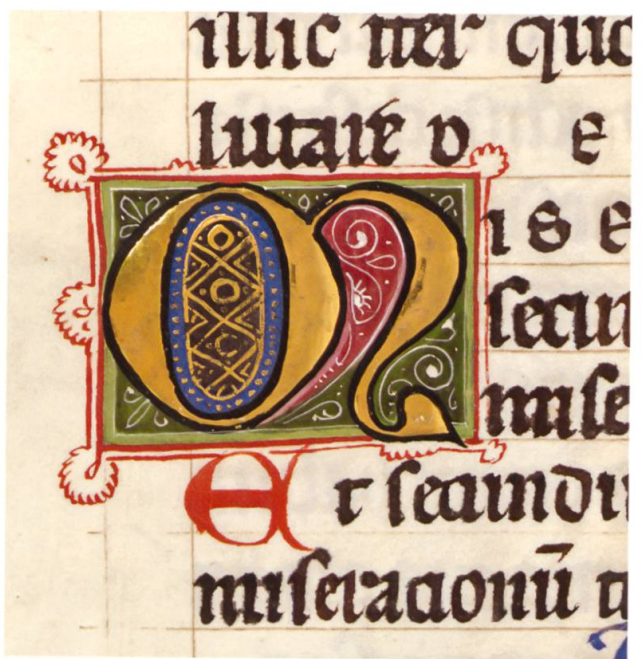 illic iter quo
lutare d E
MISE
secun
mise
Et secundu
miseracionū t